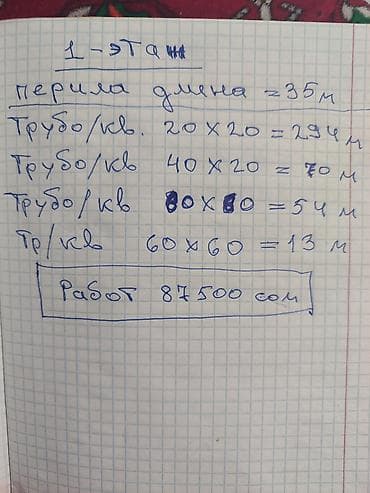 1-этаж
перила длена = 35 м
Трубо/кв. 20 х 20 = 294 м
Трубо/кв 40 х 20 = 70 м
Трубо/кв 80 х 80 = 54 м
Тр/кв 60 х 60 = 13 м
Работ 87500 сом